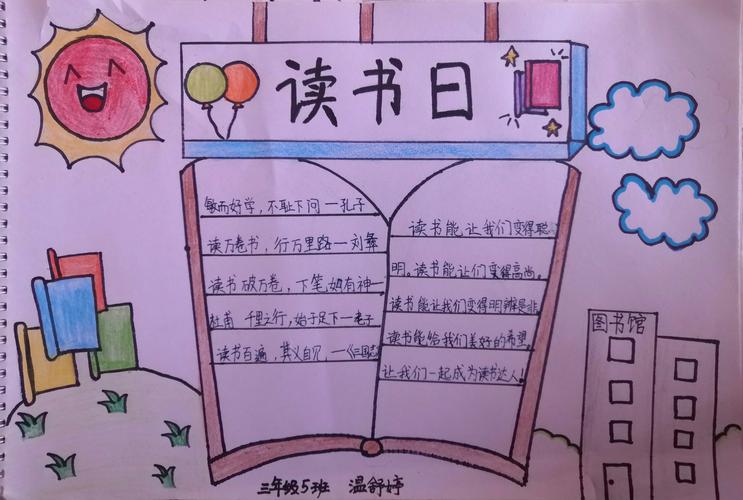 读书日
敏而好学，不耻下问—孔子
读万卷书，行万里路—刘彝
读书破万卷，下笔如有神—
杜甫 千里之行，始于足下—老子
读书百遍，其义自见，—《三国志
读书能让我们变得聪
明。读书能让们变得高尚。
读书能让我们变得明辨是非。
读书能给我们美好的希望。
让我们一起成为读书达人！
图书馆
三年级5班 温舒婷